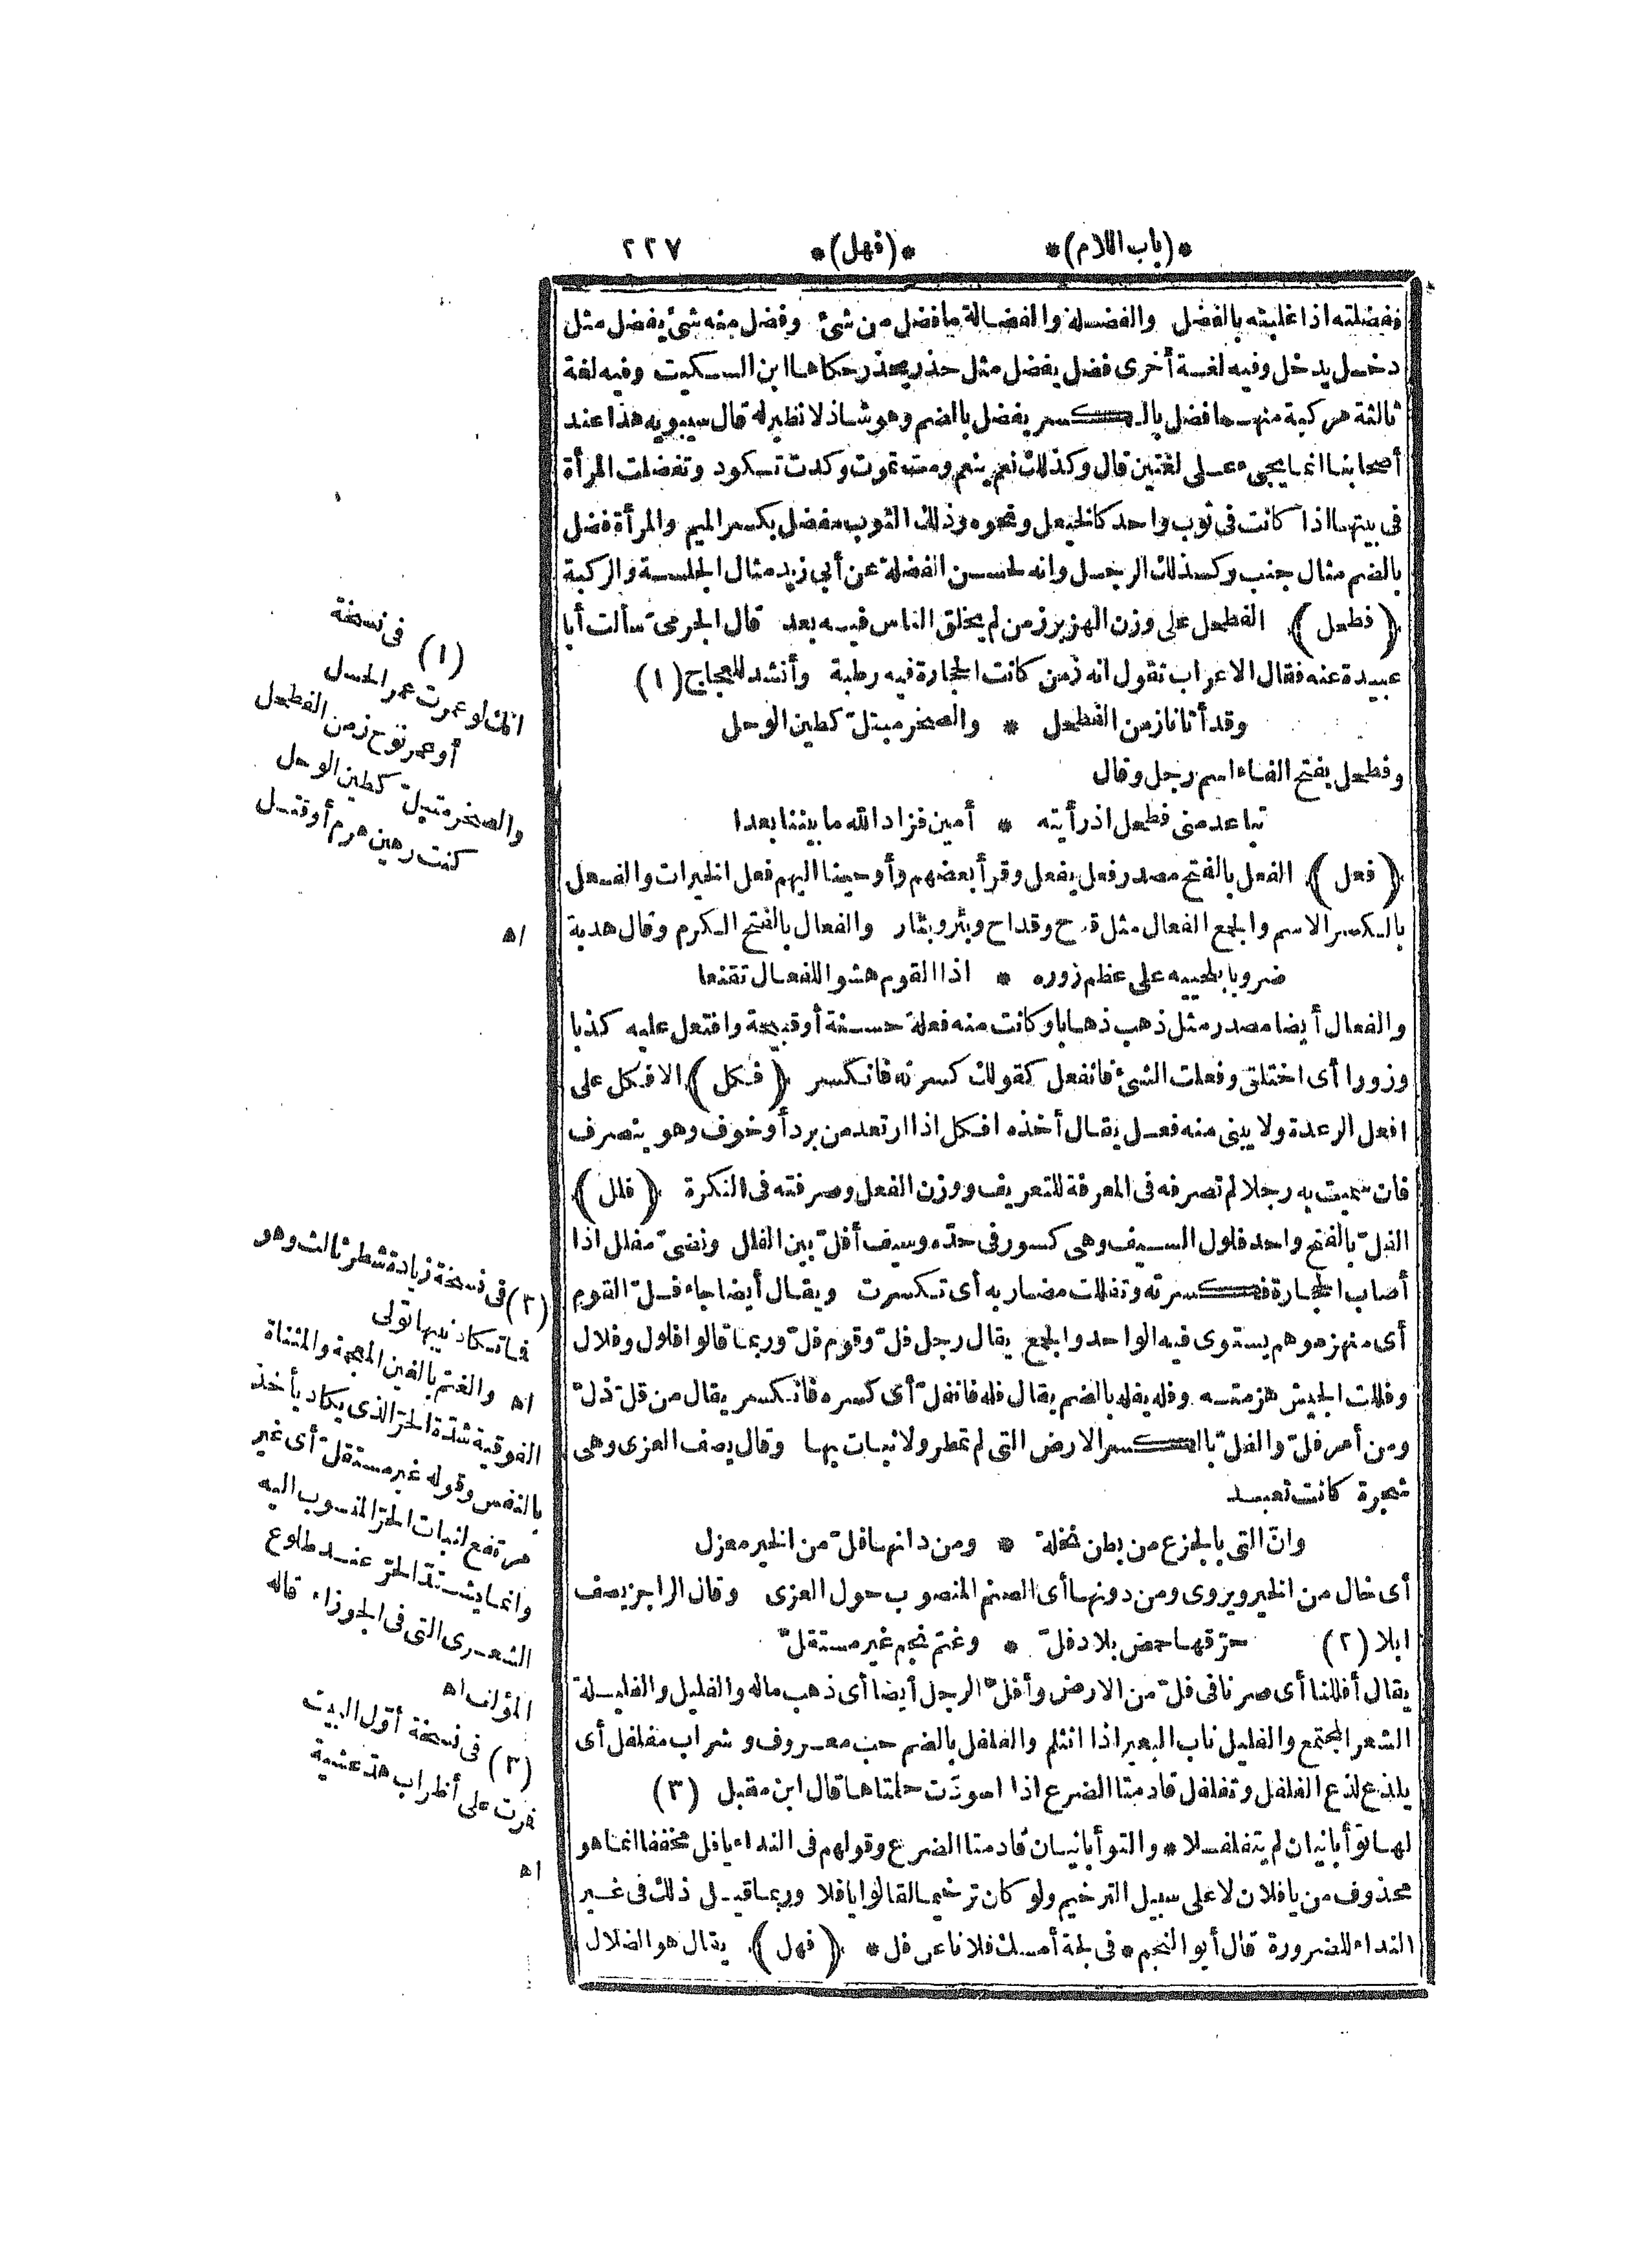 *(باب اللام)* *(فهل)* ٢٢٧
ففضلته اذا غلبته بالفضل والفضلة والفضالة ما فضل من شئ وفضل منه شئ يفضل مثل
دخل يدخل وفيه لغة أخرى فضل يفضل مثل حذر يحذر حكاها ابن السكيت وفيه لغة
ثالثة مركبة منهما فضل بالكسر يفضل بالضم وهو شاذ لا نظير له قال سيبويه هذا عند
أصحابنا انما يجىء على لغتين قال وكذلك نعم ينعم ومت تموت وكدت تكود وتفضلت المرأة
فى بيتها اذا كانت فى ثوب واحد كالخيعل ونحوه وذلك الثوب مفضل بكسر الميم والمرأة فضل
بالضم مثال جنب وكذلك الرجل وانه لحسن الفضلة عن أبى زيد مثال الجلسة والركبة
(فطحل) الفطحل على وزن الهزبر زمن لم يخلق الناس فيه بعد قال الجرمىّ سألت أبا
عبيدة عنه فقال الاعراب تقول انه زمن كانت الحجارة فيه رطبة وأنشد للعجاج (١)
وقد أتانا زمن الفطحل * والصخر مبتلّ كطين الوحل
وفطحل بفتح الفاء اسم رجل وقال
تباعد منى فطحل اذ رأيته * أمين فزاد الله ما بيننا بعدا
(فعل) الفعل بالفتح مصدر فعل يفعل وقرأ بعضهم وأوحينا اليهم فعل الخيرات والفعل
بالكسر الاسم والجمع الفعال مثل قدح وقداح وبئر وبئار والفعال بالفتح الكرم وقال هدبة
ضروبا بلحييه على عظم زوره * اذا القوم هشوا للفعال تقنعا
والفعال أيضا مصدر مثل ذهب ذهابا وكانت منه فعلة حسنة أو قبيحة وافتعل عليه كذبا
وزورا أى اختلق وفعلت الشئ فانفعل كقولك كسرته فانكسر (فكل) الافكل على
افعل الرعدة ولا يبنى منه فعل يقال أخذه افكل اذا ارتعد من برد أو خوف وهو ينصرف
فان سميت به رجلا لم تصرفه فى المعرفة للتعريف ووزن الفعل وصرفته فى النكرة (فلل)
الفلّ بالفتح واحد فلول السيف وهى كسور فى حدّه وسيف أفلّ بين الفلل ونضىّ مفلل اذا
أصاب الحجارة فكسرته وتفللت مضاربه أى تكسرت ويقال أيضا جاء فلّ القوم
أى منهزموهم يستوى فيه الواحد والجمع يقال رجل فلّ وقوم فلّ وربما قالوا فلول وفلال
وفللت الجيش هزمته وفله يفله بالضم يقال فله فانفلّ أى كسره فانكسر يقال من قلّ ذلّ
ومن أمر فلّ والفلّ بالكسر الارض التى لم تمطر ولا نبات بها وقال يصف العزى وهى
شجرة كانت تعبد
وانّ التى بالجزع من بطن نخلة * ومن دانها فلّ من الخير معزل
أى خال من الخير ويروى ومن دونها أى الصنم المنصوب حول العزى وقال الراجز يصف
ابلا (٢) حرّقها حمض بلاد فلّ * وغتم نجم غير مستقلّ
يقال أفللنا أى صرنا فى فلّ من الارض وأفلّ الرجل أيضا أى ذهب ماله والفليل والفليلة
الشعر المجتمع والفليل ناب البعير اذا انثلم والفلفل بالضم حب معروف وشراب مفلفل أى
يلذع لذع الفلفل وتفلفل قادمتا الضرع اذا اسودّت حلمتاها قال ابن مقبل (٣)
لها توأبانيان لم يتفلفلا * والتوأبانيان قادمتا الضرع وقولهم فى النداء يافل مخففا انما هو
محذوف من يا فلان لا على سبيل الترخيم ولو كان ترخيما لقالوا يا فلا وربما قيل ذلك فى غير
النداء للضرورة قال أبو النجم * فى لجة أمسك فلانا عن فل * (فهل) يقال هو الضلال
(١) فى نسخة
انك لو عمرت عمر الحسل
أو عمر نوح زمن الفطحل
والصخر مبتلّ كطين الوحل
كنت رهين هرم أو قتل
اه
(٢) فى نسخة زيادة شطر ثالث وهو
فما تكاد نيبها تولى
اه والغتم بالغين المعجمة والمثناة
الفوقية شدّة الحرّ الذى يكاد يأخذ
بالنفس وقوله غير مستقلّ أى غير
مرتفع لثبات الحرّ المنسوب اليه
وانما يشتدّ الحرّ عند طلوع
الشعرى التى فى الجوزاء قاله
المؤلف اه
(٣) فى نسخة أوّل البيت
فمرت على أظراب هرّ عشية
اه